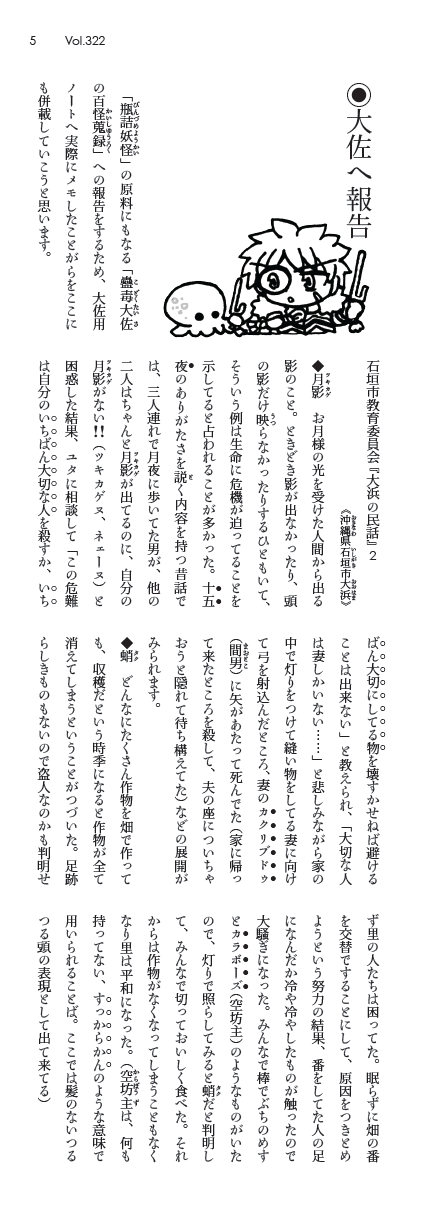 5 Vol.322
◉大佐へ報告
「瓶詰妖怪」の原料にもなる「蠱毒大佐
の百怪蒐録」への報告をするため、大佐用
ノートへ実際にメモしたことがらをここに
も併載していこうと思います。
石垣市教育委員会『大浜の民話』2
《沖縄県石垣市大浜》
◆月影　お月様の光を受けた人間から出る
影のこと。ときどき影が出なかったり、頭
の影だけ映らなかったりするひともいて、
そういう例は生命に危機が迫ってることを
示してると占われることが多かった。十五
夜のありがたさを説く内容を持つ昔話で
は、三人連れで月夜に歩いてた男が、他の
二人はちゃんと月影が出てるのに、自分の
月影がない!!（ツキカゲヌ、ネェーヌ）と
困惑した結果、ユタに相談して「この危難
は自分のいちばん大切な人を殺すか、いち
ばん大切にしてる物を壊すかせねば避ける
ことは出来ない」と教えられ、「大切な人
は妻しかいない……」と悲しみながら家の
中で灯りをつけて縫い物をしてる妻に向け
て弓を射込んだところ、妻のカクリブドゥ
（間男）に矢があたって死んでた（家に帰っ
て来たところを殺して、夫の座についちゃ
おうと隠れて待ち構えてた）などの展開が
みられます。
◆蛸　どんなにたくさん作物を畑で作って
も、収穫だという時季になると作物が全て
消えてしまうということがつづいた。足跡
らしきものもないので盗人なのかも判明せ
ず里の人たちは困ってた。眠らずに畑の番
を交替ですることにして、原因をつきとめ
ようという努力の結果、番をしてた人の足
になんだか冷や冷やしたものが触ったので
大騒ぎになった。みんなで棒でぶちのめす
とカラボーズ（空坊主）のようなものがいた
ので、灯りで照らしてみると蛸だと判明し
て、みんなで切っておいしく食べた。それ
からは作物がなくなってしまうこともなく
なり里は平和になった。（空坊主は、何も
持ってない、すっからかんのような意味で
用いられることば。ここでは髪のないつる
つる頭の表現として出て来てる）